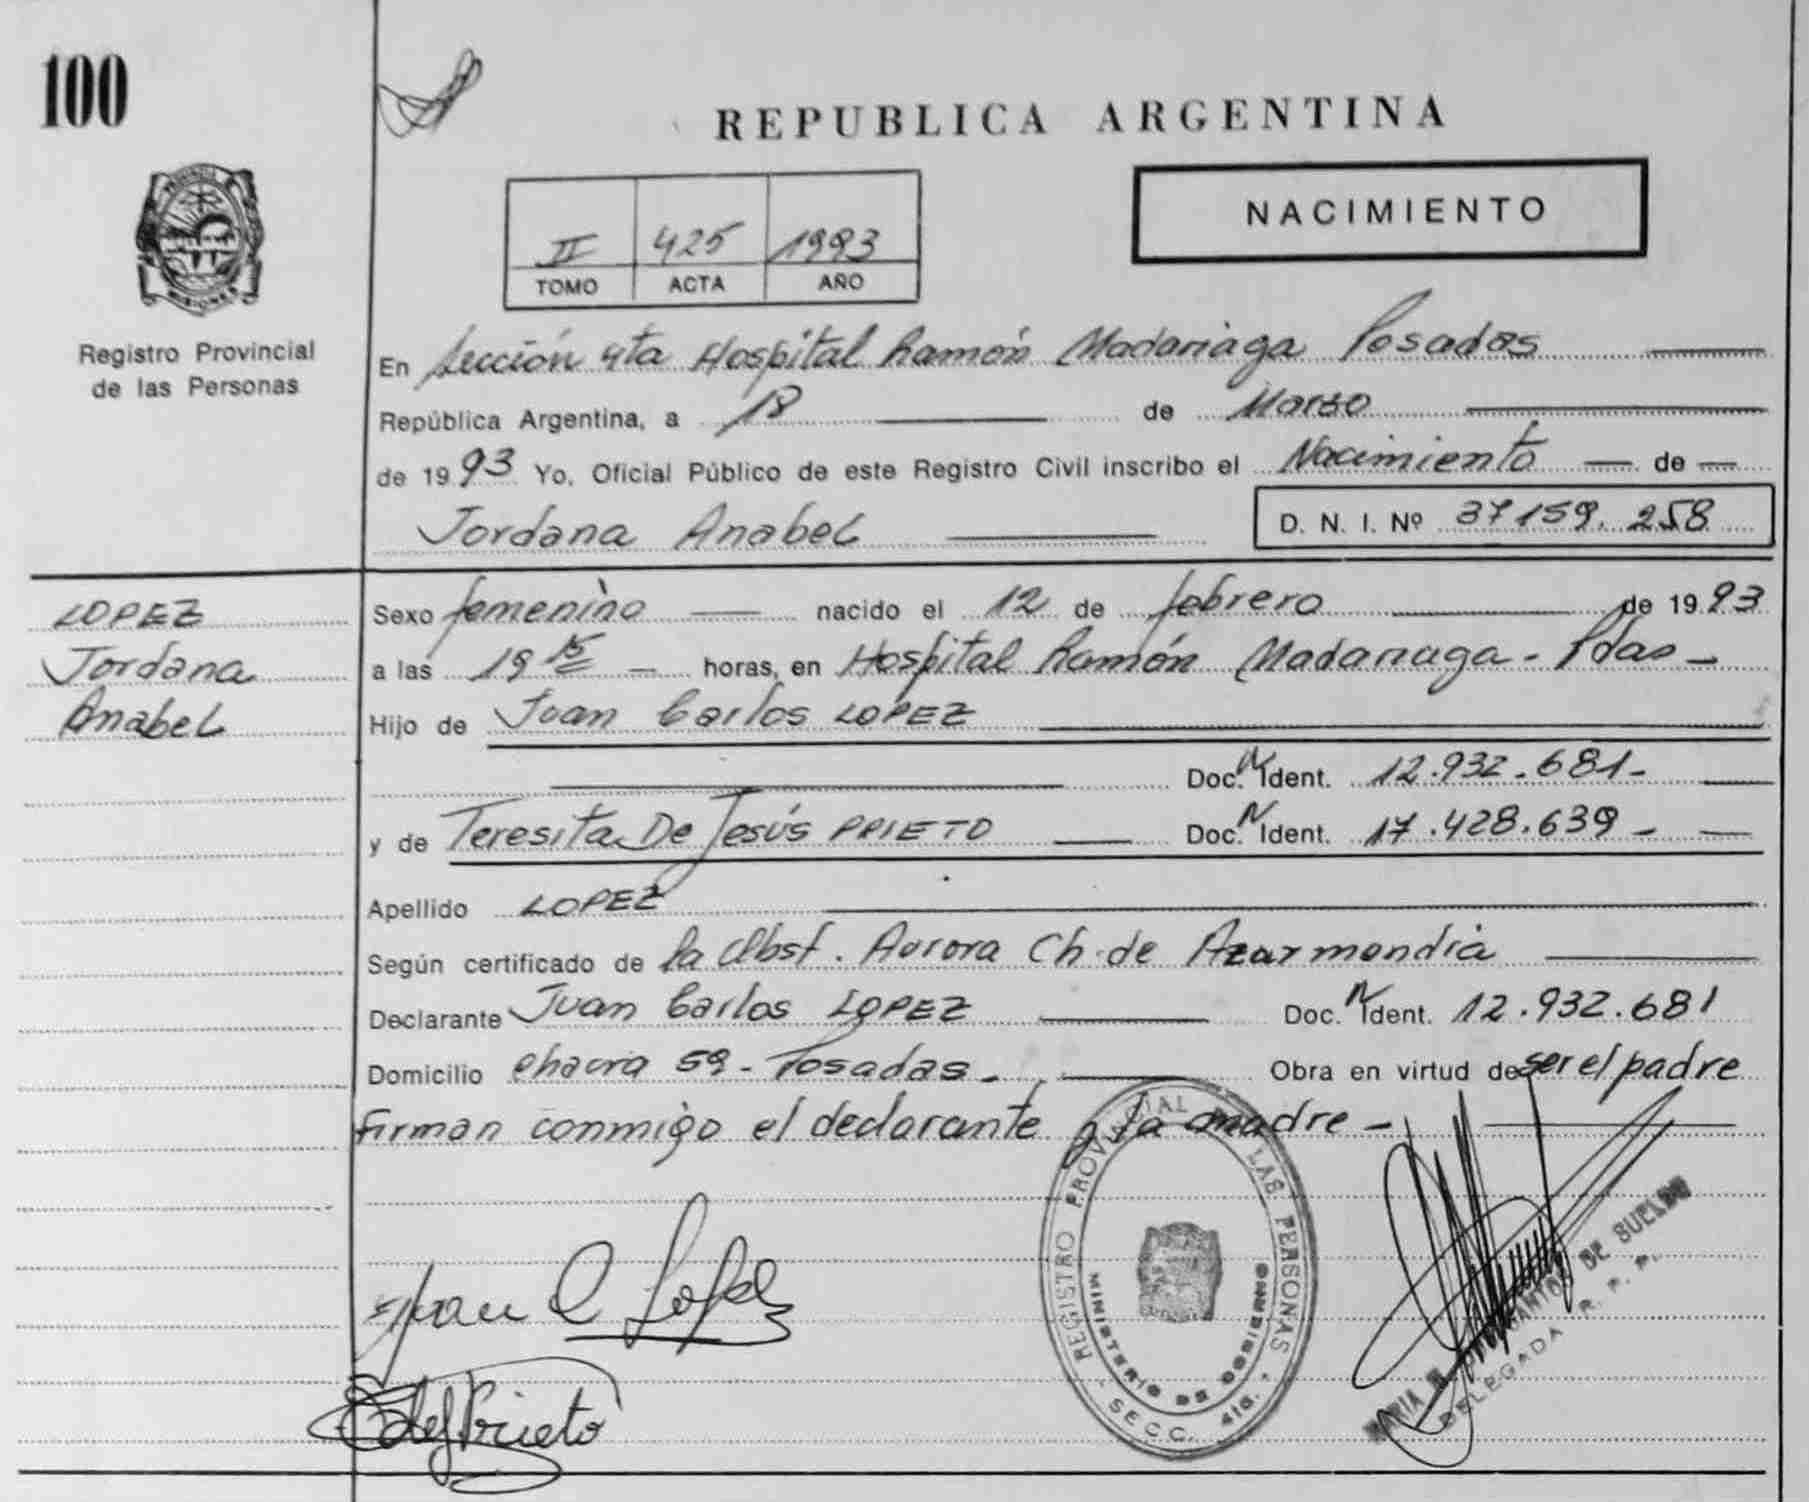 100
REPUBLICA ARGENTINA
NACIMIENTO
II 425 1993
TOMO ACTA AÑO
MISIONES
Registro Provincial
de las Personas
En Sección 4ta Hospital Ramón Madariaga Posadas
República Argentina, a 18 de Marzo
de 1993 Yo, Oficial Público de este Registro Civil inscribo el Nacimiento de
Jordana Anabel
D. N. I. Nº 37159.258
LOPEZ
Jordana
Anabel
Sexo femenino nacido el 12 de febrero de 1993
a las 19 15 horas, en Hospital Ramón Madariaga - Pdas -
Hijo de Juan Carlos LOPEZ
Doc. N Ident. 12.932.681-
y de Teresita De Jesús PRIETO Doc. N Ident. 17.428.639 -
Apellido LOPEZ
Según certificado de la Obst. Aurora Ch. de Azarmendia
Declarante Juan Carlos LOPEZ Doc. N Ident. 12.932.681
Domicilio Chacra 59 - Posadas - Obra en virtud de ser el padre
Firman conmigo el declarante y la madre -
Juan C Lopez
Prieto
REGISTRO PROVINCIAL LAS PERSONAS
MINISTERIO DE GOBIERNO
SECC. 4ta.
MARIA DE SUELDO
DELEGADA R. P. P.